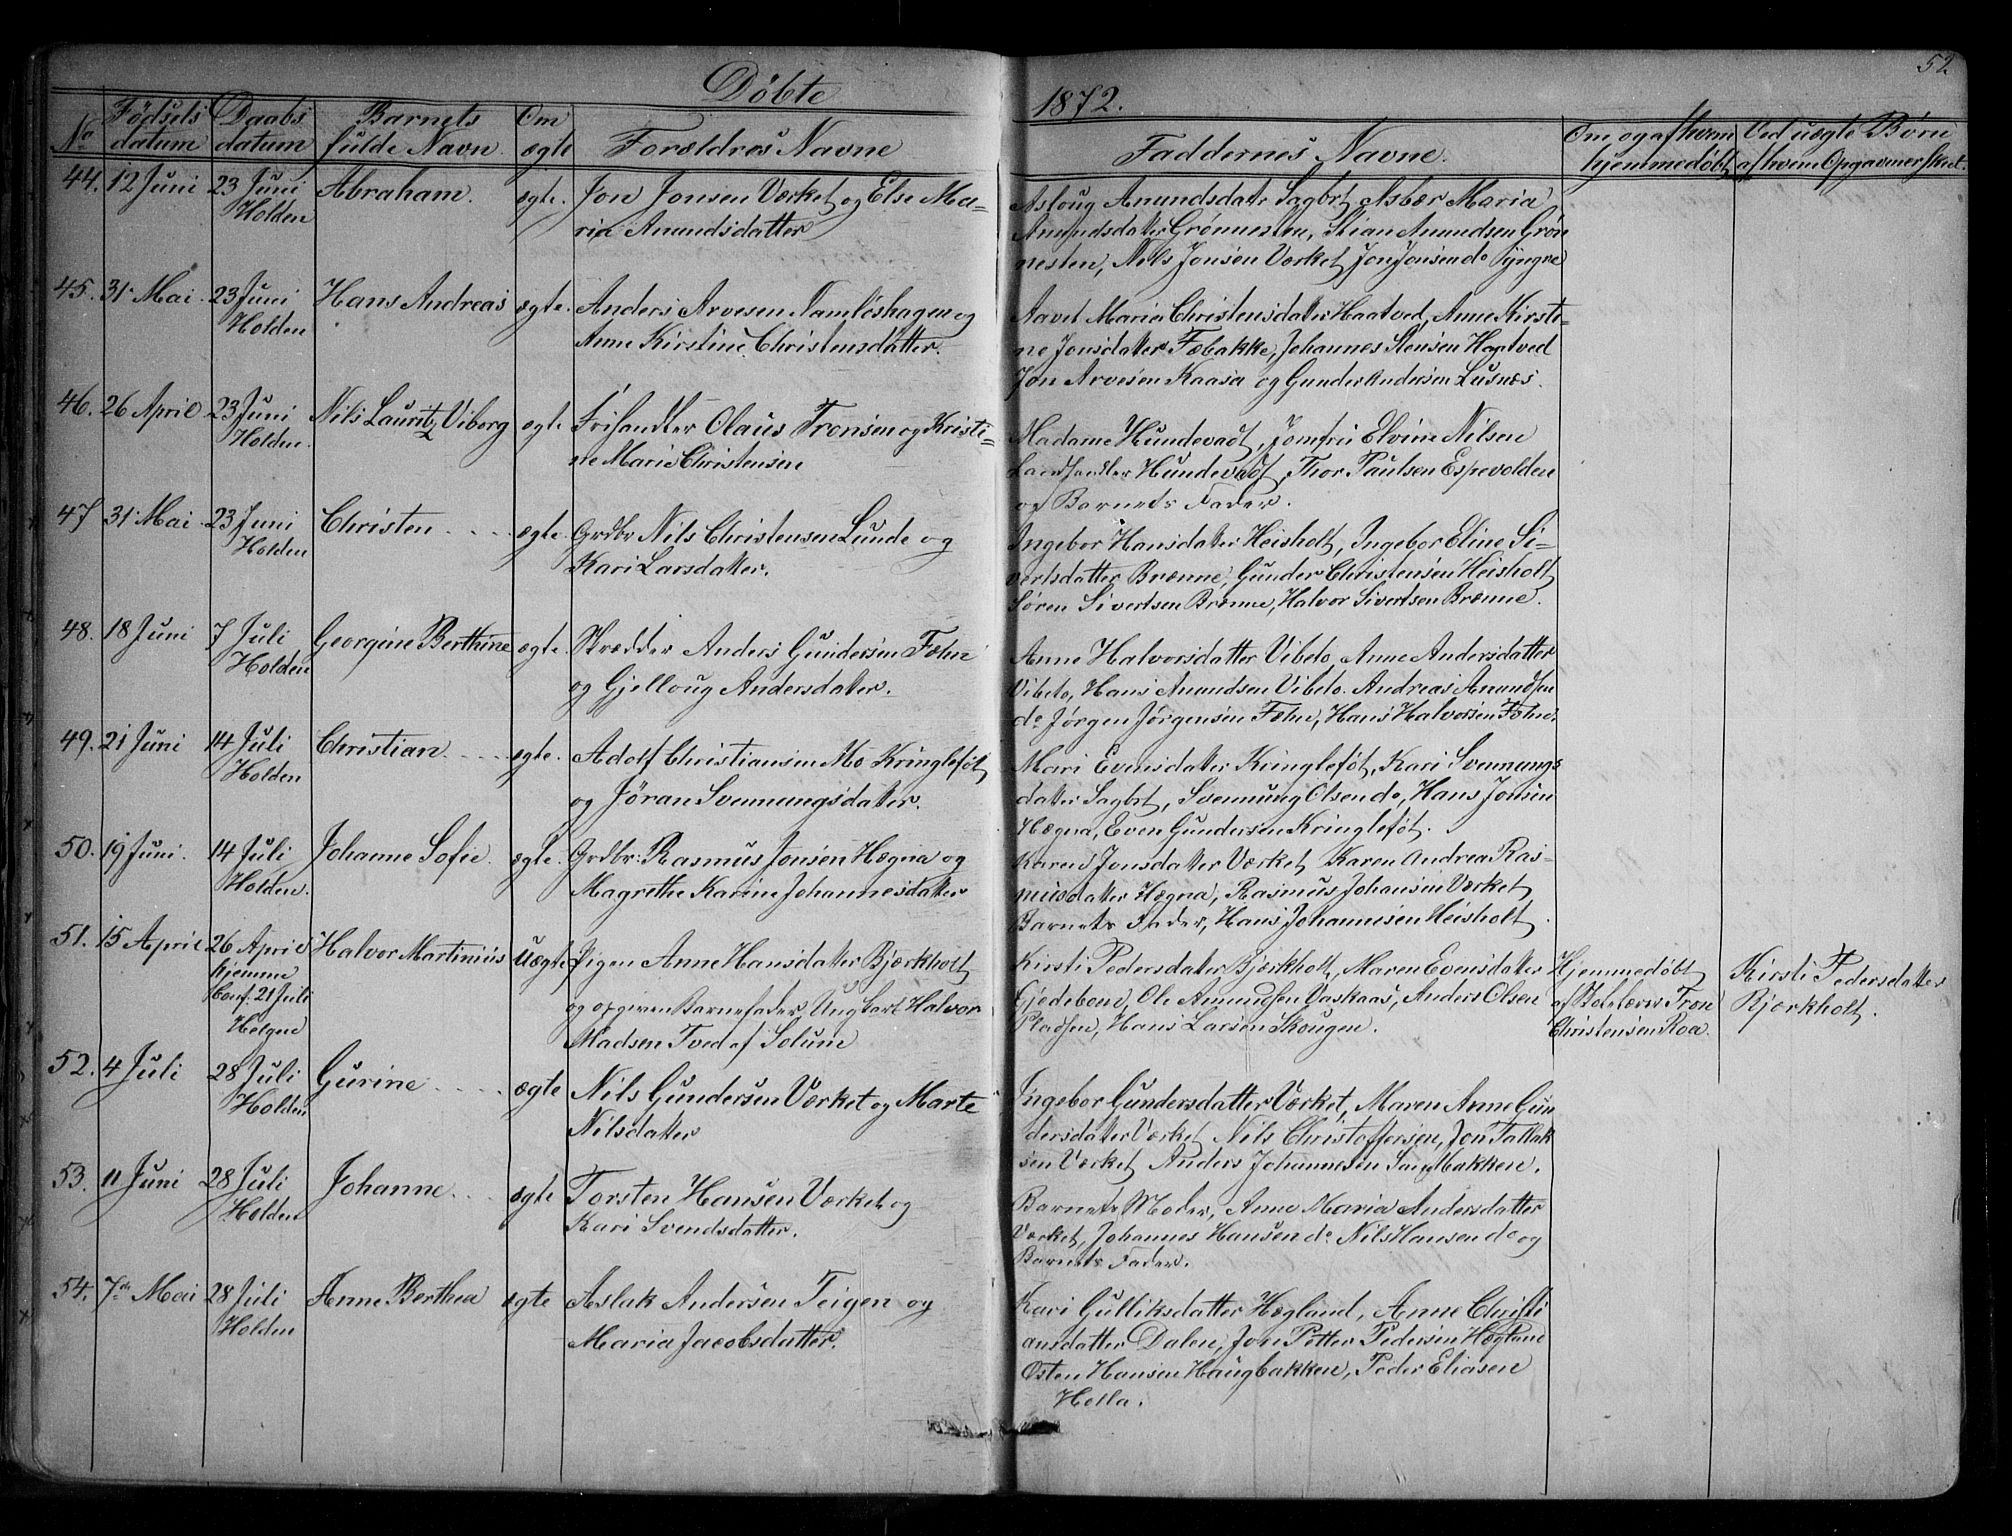 Døbte
1872.
52
No
Fødsels datum
Daabs datum
Barnets fulde Navn
Om ægte
Forældres Navne
Faddernes Navne.
Om og af hvem hjemmedøbt
Ved uægte Børn af hvem Opgaven er skeet.
44. 12 Juni 23 Juni Holden Abraham. ægte. Jon Jonsen Værket og Else Ma-
ria Anundsdatter
Asloug Anundsdatr Sagbrt Asbær Maria
Anundsdatter Grønnesten, Stian Anundsen Grøn
nesten, Nils Jonsen Værket Jon Jonsen do Yyngre
45. 31 Mai. 23 Juni Holden Hans Andreas ægte. Anders Arvesen Namløshagen og
Anne Kirstine Christensdatter.
Aavet Maria Christensdatter Haatved, Anne Kirsti-
ne Jonsdatter Fæbakke, Johannes Stensen Haatved
Jon Arvesen Kaasa og Gunder Andersen Lusnæs.
46. 26 April 23 Juni Holden. Nils Lauritz Viborg ægte Frihandler Olaus Tronsen og Kristi-
ne Marie Christensen
Madame Hundevadt, Jomfru Elvine Nilsen
Landhandler Hundevadt, Thor Paulsen Espevolden
og Barnets Fader.
47 31 Mai 23 Juni Holden Christen ægte. Grdbr Nils Christensen Lunde og
Kari Larsdatter.
Ingebor Hansdatter Heisholt, Ingebor Eline Si-
vertsdatter Brænne, Gunder Christensen Heisholt
Søren Sivertsen Brænne, Halvor Sivertsen Brænne.
48. 18 Juni 7 Juli Holden Georgine Berthine ægte. Skrædder Anders Gundersen Fæhn
og Gjelloug Andersdatter.
Anne Halvorsdatter Vibeto, Anne Andersdatter
Vibeto, Hans Anundsen Vibeto. Andreas Anundsen
do Jørgen Jørgensen Fæhn, Hans Halvorsen Fæhn.
49. 21 Juni 14 Juli Holden Christian ægte. Adolf Christiansen Mo Kringlefôt
og Jøran Svennungsdatter.
Mari Evensdatter Kringlefôt, Kari Svennungs-
datter Sagbrt, Svennung Olsen do, Hans Jonsen
Hægna, Even Gundersen Kringlefôt.
50. 19 Juni. 14 Juli Holden. Johanne Sofie ægte. Grdbr: Rasmus Jonsen Hægna og
Magrethe Karine Johannesdatter
Karen Jonsdatter Værket Karen Andrea Ras-
musdatter Hægna, Rasmus Johansen Værket
Barnets Fader, Hans Johannesen Heisholt.
51. 15 April 26 April hjemme Conf. 21 Juli Helgen Halvor Martinius Uægte Pigen Anne Hansdatter Bjærkholt
og opgiven Barnefader, Ungkarl Halvor
Madsen Tved af Solum
Kirsti Pedersdatter Bjærkholt, Maren Evensdatter
Gjedebøen, Ole Amundsen Vaskaas, Anders Olsen
Pladsen, Hans Larsen Skougen.
Hjemmedøbt
af Skolelærer Tron
Christensen Roa.
Kirsti Pedersdatter
Bjærkholt.
52. 4 Juli 28 Juli Holden Gurine ægte Nils Gundersen Værket og Marte
Nilsdatter
Ingebor Gundersdatter Værket, Maren Anne Gun
dersdatter Værket Nils Christoffersen, Jon Tallak
sen Værket Anders Johannesen Sandbakken.
53. 11 Juni 28 Juli Holden Johanne. ægte Torsten Hansen Værket og
Kari Svendsdatter.
Barnets Moder, Anne Maria Andersdatter
Værket, Johannes Hansen do Nils Hansen do og
Barnets Fader.
54. 7de Mai 28 Juli Holden Anne Berthea ægte Aslak Andersen Teigen og
Maria Jacobsdatter.
Kari Gulliksdatter Hægland, Anne Christi
ansdatter Dalen, Jon Petter Pedersen Hægland
Osten Hansen Haugbakken, Peder Eliasen
Holla.